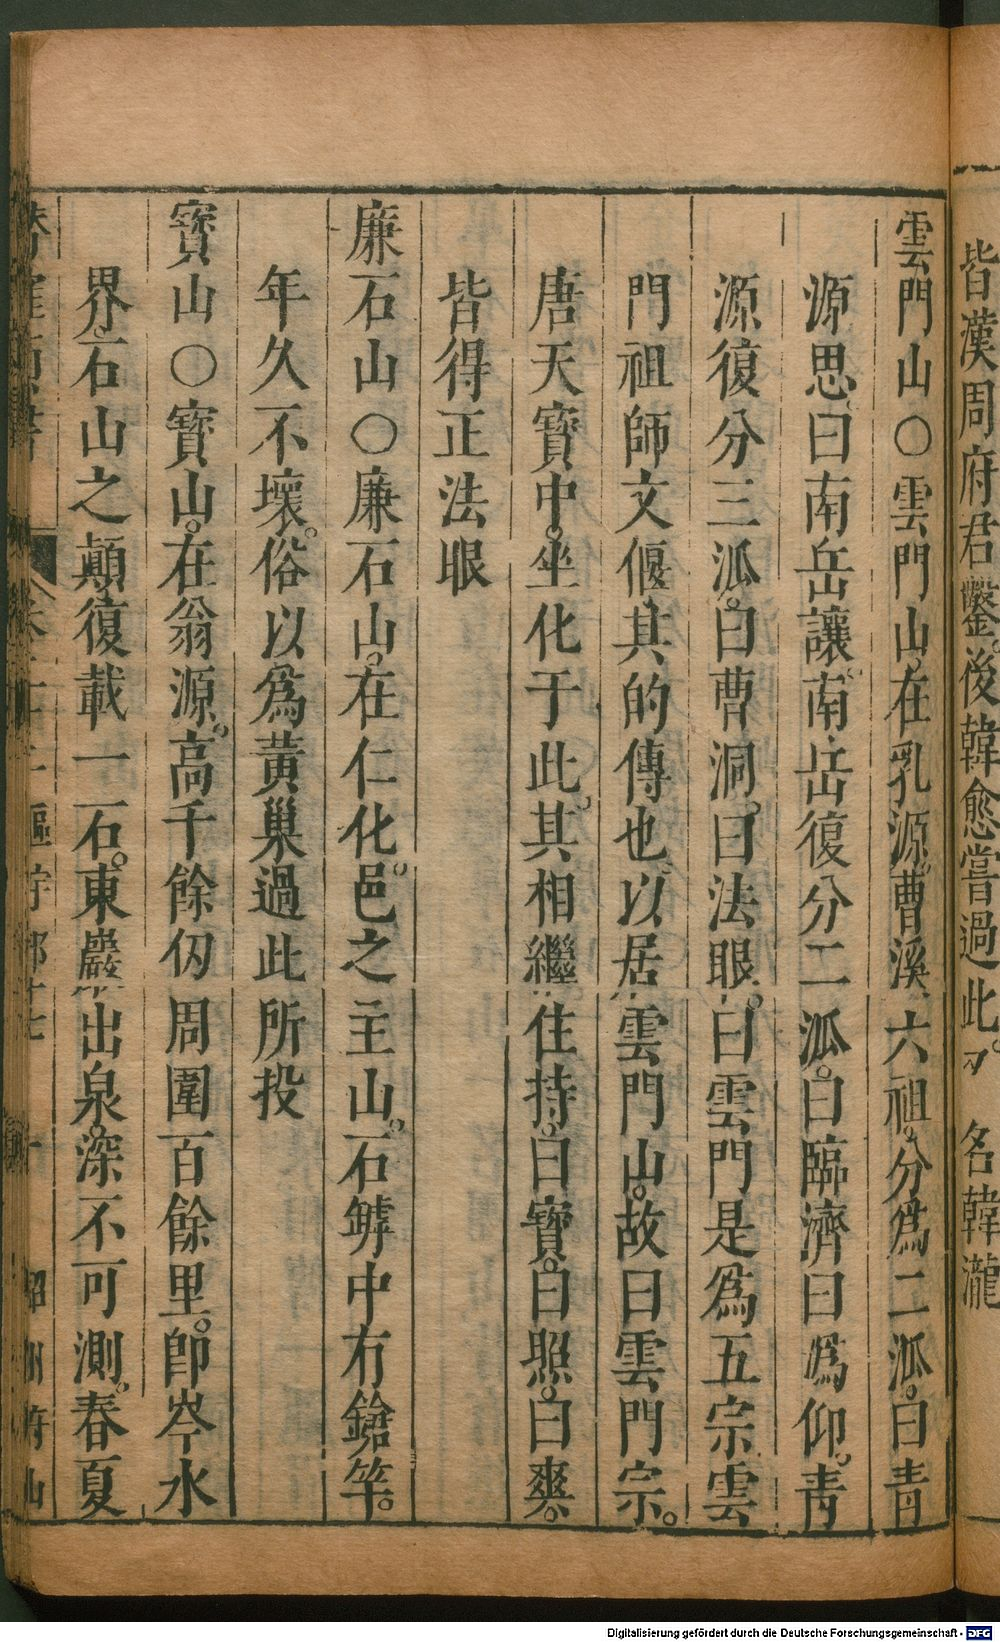 皆漢周府君鑿。後韓愈嘗過此。又名韓瀧
雲門山○雲門山。在乳源。曹溪六祖。分爲二派。曰青
源思。曰南岳讓。南岳復分二派。曰臨濟曰潙仰。青
源復分三派。曰曹洞。曰法眼。曰雲門是爲五宗雲
門祖師文偃。其的傳也。以居雲門山。故曰雲門宗。
唐天寶中。坐化于此。其相繼住持。曰寶。曰照。曰爽。
皆得正法眼
廉石山○廉石山。在仁化邑。之主山。石罅中有鎗竿。
年久不壞。俗以爲黃巢過此所投
寶山○寶山。在翁源。高千餘仞周圍百餘里。卽岑水
界。石山之顛。復載一石。東巖出泉。深不可測。春夏
卷 十 韶州府山
Digitalisierung gefördert durch die Deutsche Forschungsgemeinschaft - DFG